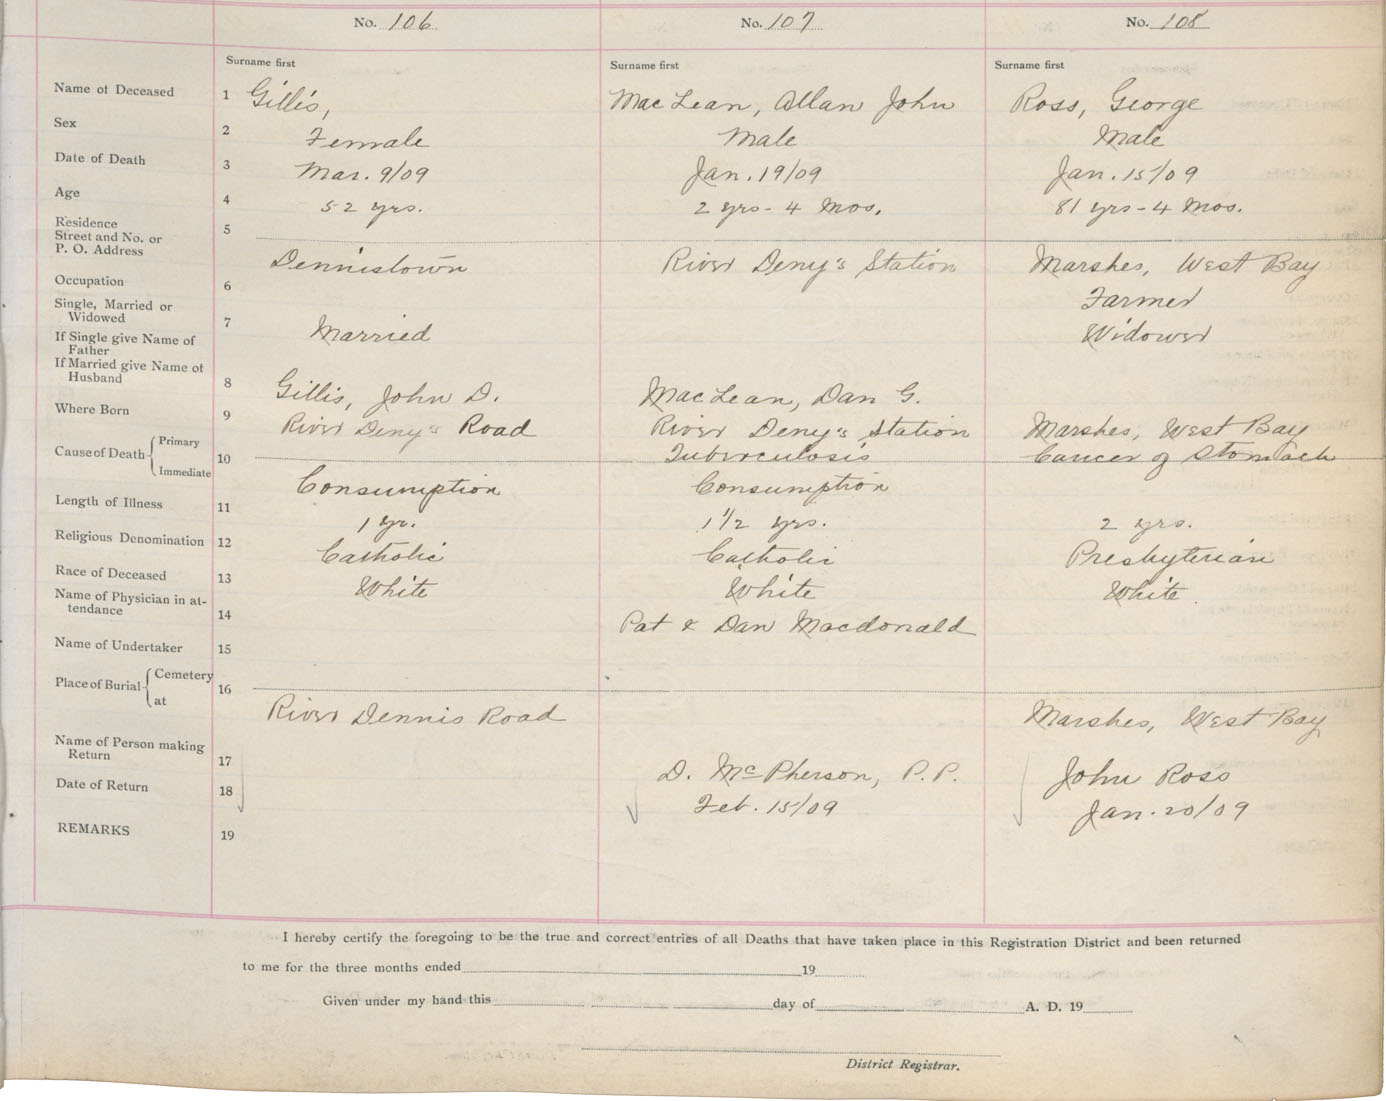 No. 106 No. 107 No. 108
Surname first Surname first Surname first
Name of Deceased 1 Gillis, MacLean, Allan John Ross, George
Sex 2 Female Male Male
Date of Death 3 Mar. 9/09 Jan. 19/09 Jan. 15/09
Age 4 52 yrs. 2 yrs - 4 Mos. 81 yrs - 4 Mos.
Residence
Street and No. or 5
P. O. Address Dennistown River Deny's Station Marshes, West Bay
Occupation 6 Farmer
Single, Married or
Widowed 7 Married Widower
If Single give Name of
Father
If Married give Name of
Husband 8 Gillis, John D. MacLean, Dan G.
Where Born 9 River Deny's Road River Deny's Station Marshes, West Bay
Cause of Death Primary 10 Tuberculosis Cancer of Stomach
Immediate Consumption Consumption
Length of Illness 11 1 yr. 1 1/2 yrs. 2 yrs.
Religious Denomination 12 Catholic Catholic Presbyterian
Race of Deceased 13 White White White
Name of Physician in at-
tendance 14 Pat & Dan Macdonald
Name of Undertaker 15
Place of Burial Cemetery 16
at River Dennis Road Marshes, West Bay
Name of Person making
Return 17 D. McPherson, P.P. John Ross
Date of Return 18 Feb. 15/09 Jan. 20/09
REMARKS 19
I hereby certify the foregoing to be the true and correct entries of all Deaths that have taken place in this Registration District and been returned
to me for the three months ended 19
Given under my hand this day of A. D. 19
District Registrar.